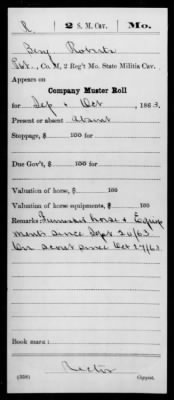 R | 2 S. M. Cav. | Mo.
Benj Roberts
Pvt., Co. M, 2 Reg't Mo. State Militia Cav.
Appears on
Company Muster Roll
for Sep & Oct, 1863.
Present or absent Absent
Stoppage, $ 100 for
Due Gov't, $ 100 for
Valuation of horse, $ 100
Valuation of horse equipments, $ 100
Remarks: Furnished horse & Equip
ments since Sept 20/63
On scout since Oct 27/63
Book mark:
Rector
(358) Copyist.